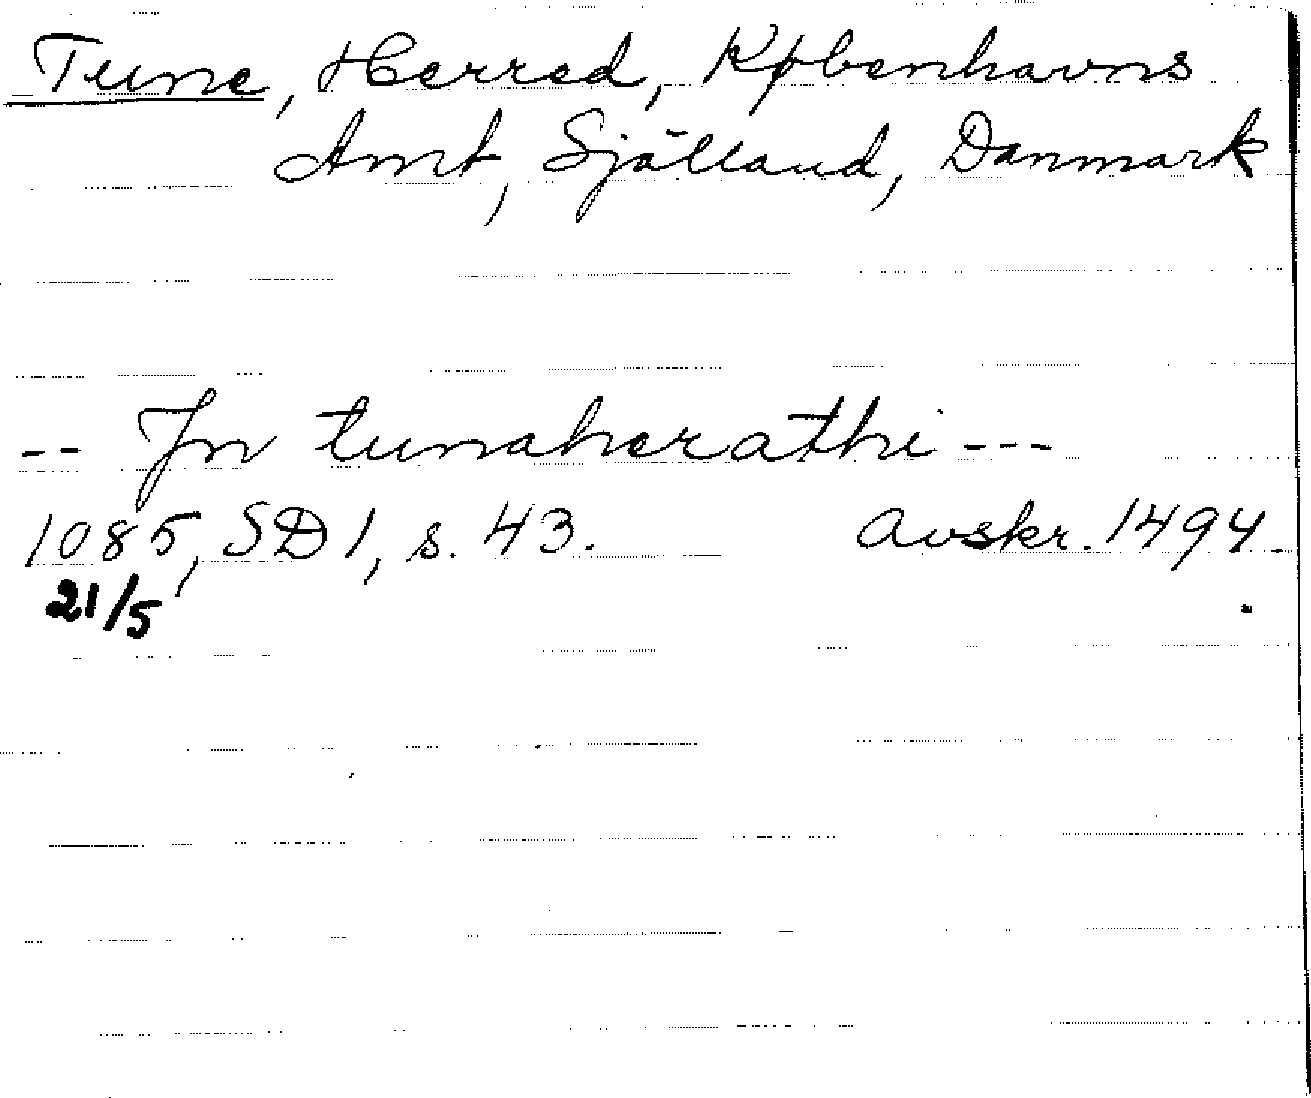 Tune, Herred, Københavns
Amt, Själland, Danmark
-- Jn tunaherathi ---
1085, SD 1, s. 43. Avskr. 1494.
21/5